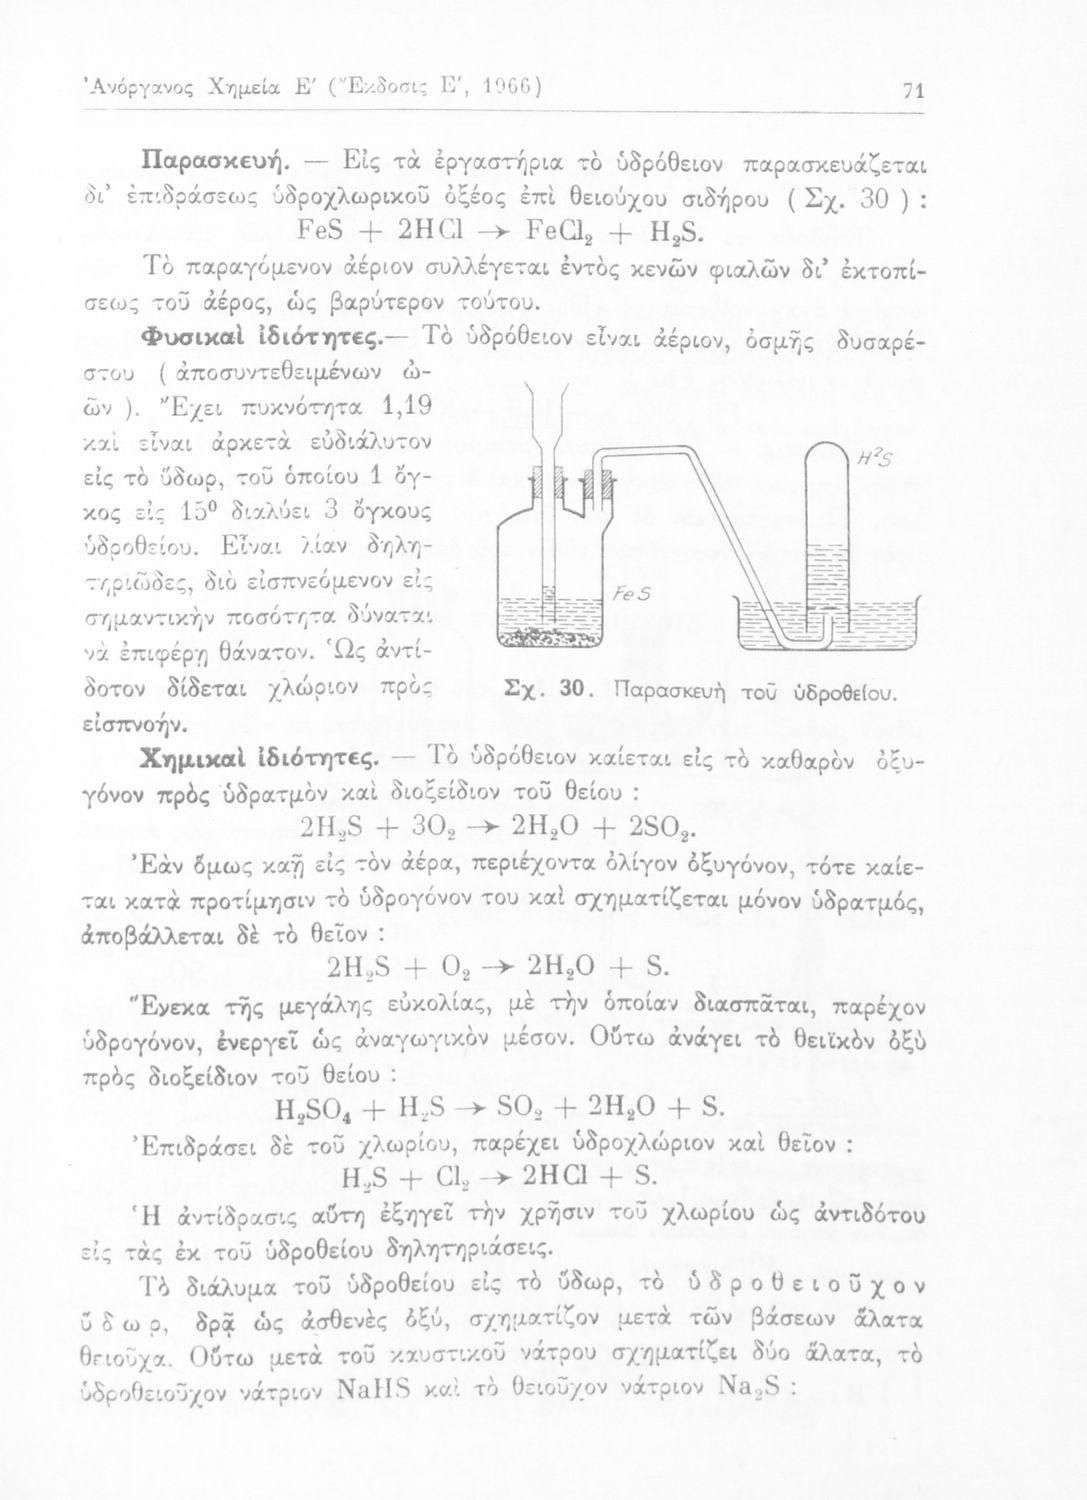 Ἀνόργανος Χημεία Ε′ (Ἔκδοσις Ε′, 1966)
71
Παρασκευή. — Εἰς τὰ ἐργαστήρια τὸ ὑδρόθειον παρασκευάζεται
δι᾽ ἐπιδράσεως ὑδροχλωρικοῦ ὀξέος ἐπὶ θειούχου σιδήρου ( Σχ. 30 ) :
FeS + 2HCl → FeCl₂ + H₂S.
Τὸ παραγόμενον ἀέριον συλλέγεται ἐντὸς κενῶν φιαλῶν δι᾽ ἐκτοπί-
σεως τοῦ ἀέρος, ὡς βαρύτερον τούτου.
Φυσικαὶ ἰδιότητες.— Τὸ ὑδρόθειον εἶναι ἀέριον, ὀσμῆς δυσαρέ-
στου ( ἀποσυντεθειμένων ὠ-
ῶν ). Ἔχει πυκνότητα 1,19
καὶ εἶναι ἀρκετὰ εὐδιάλυτον
εἰς τὸ ὕδωρ, τοῦ ὁποίου 1 ὄγ-
κος εἰς 15⁰ διαλύει 3 ὄγκους
ὑδροθείου. Εἶναι λίαν δηλη-
τηριῶδες, διὸ εἰσπνεόμενον εἰς
σημαντικὴν ποσότητα δύναται
νὰ ἐπιφέρῃ θάνατον. Ὡς ἀντί-
δοτον δίδεται χλώριον πρὸς
εἰσπνοήν.
H²S
FeS
Σχ. 30. Παρασκευὴ τοῦ ὑδροθείου.
Χημικαὶ ἰδιότητες. — Τὸ ὑδρόθειον καίεται εἰς τὸ καθαρὸν ὀξυ-
γόνον πρὸς ὑδρατμὸν καὶ διοξείδιον τοῦ θείου :
2H₂S + 3O₂ → 2H₂O + 2SO₂.
Ἐὰν ὅμως καῇ εἰς τὸν ἀέρα, περιέχοντα ὀλίγον ὀξυγόνον, τότε καίε-
ται κατὰ προτίμησιν τὸ ὑδρογόνον του καὶ σχηματίζεται μόνον ὑδρατμός,
ἀποβάλλεται δὲ τὸ θεῖον :
2H₂S + O₂ → 2H₂O + S.
Ἕνεκα τῆς μεγάλης εὐκολίας, μὲ τὴν ὁποίαν διασπᾶται, παρέχον
ὑδρογόνον, ἐνεργεῖ ὡς ἀναγωγικὸν μέσον. Οὕτω ἀνάγει τὸ θειϊκὸν ὀξὺ
πρὸς διοξείδιον τοῦ θείου :
H₂SO₄ + H₂S → SO₂ + 2H₂O + S.
Ἐπιδράσει δὲ τοῦ χλωρίου, παρέχει ὑδροχλώριον καὶ θεῖον :
H₂S + Cl₂ → 2HCl + S.
Ἡ ἀντίδρασις αὕτη ἐξηγεῖ τὴν χρῆσιν τοῦ χλωρίου ὡς ἀντιδότου
εἰς τὰς ἐκ τοῦ ὑδροθείου δηλητηριάσεις.
Τὸ διάλυμα τοῦ ὑδροθείου εἰς τὸ ὕδωρ, τὸ ὑδροθειοῦχον
ὕδωρ, δρᾷ ὡς ἀσθενὲς ὀξύ, σχηματίζον μετὰ τῶν βάσεων ἅλατα
θειοῦχα. Οὕτω μετὰ τοῦ καυστικοῦ νάτρου σχηματίζει δύο ἅλατα, τὸ
ὑδροθειοῦχον νάτριον NaHS καὶ τὸ θειοῦχον νάτριον Na₂S :